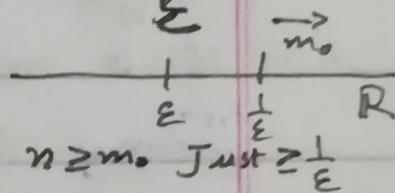 Σ
m₀
ε 1/ε R
n ≥ m₀ Just ≥ 1/ε